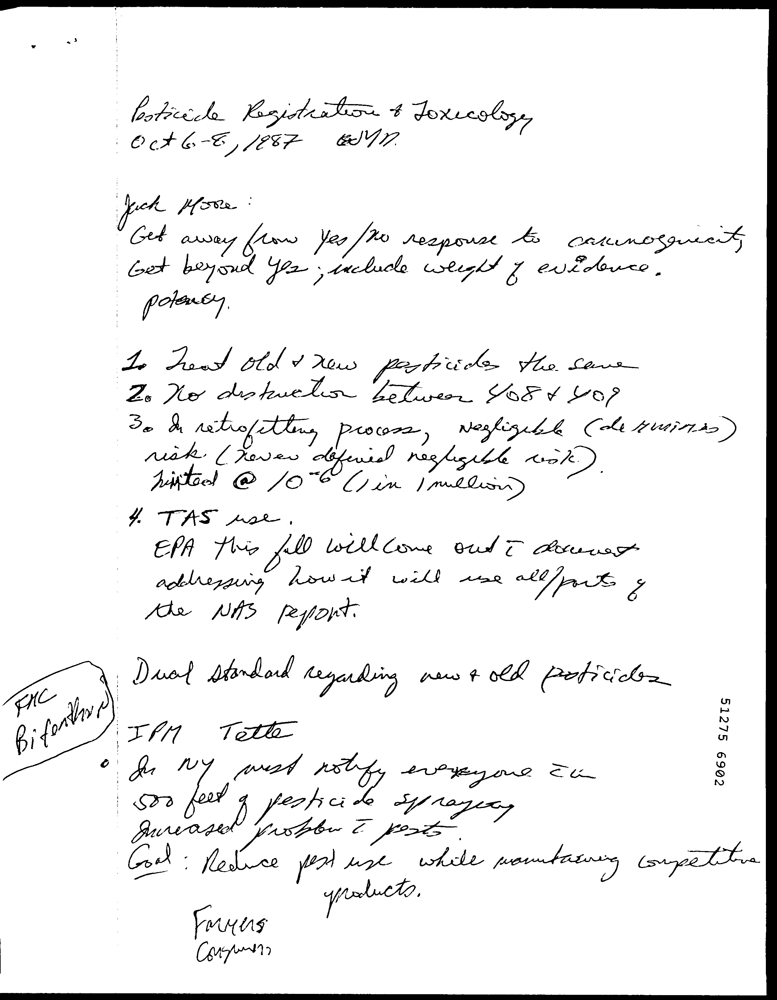 Pesticide Registration & Toxicology
Oct 6-8, 1987
Jack Moore:
Get away from Yes/No response to carcinogenicity
Get beyond Yes; include weight of evidence.
potency.
1. Treat old & new pesticides the same
2. No distinction between 408 & 409
3. In retrofitting process, negligible (de minimis)
risk. (Never defined negligible risk).
@ 10-6 (1 in 1 million)
4. TAS use.
EPA this fall will come out c̄ document
addressing how it will use all/parts of
the NAS report.
Dual standard regarding new & old pesticides
FMC
Bifenthrin
IPM Tette
In NY must notify everyone
500 feet of pesticide spraying
Increased problem c̄ pests.
Goal: Reduce pest use while maintaining competitive
products.
Farmers
Consumers
51275 6902